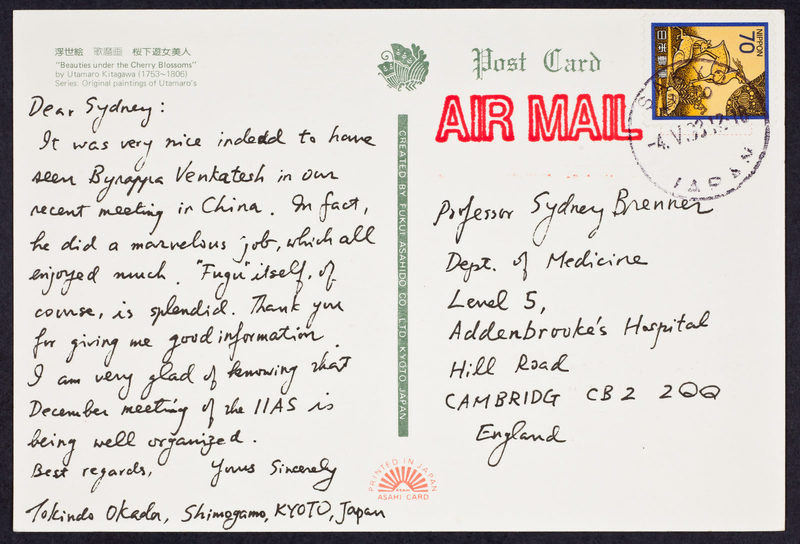 浮世絵 歌麿画 桜下遊女美人
"Beauties under the Cherry Blossoms"
by Utamaro Kitagawa (1753~1806)
Series: Original paintings of Utamaro's
Dear Sydney:
It was very nice indedd to have
seen Byrappa Venkatesh in our
recent meeting in China. In fact,
he did a marvelous job, which all
enjoyed much. "Fugu" itself, of
course, is splendid. Thank you
for giving me good information.
I am very glad of knowing that
December meeting of the IIAS is
being well organized.
Best regards, Yours Sincerely
Tokindo Okada, Shimogamo, KYOTO, Japan
CREATED BY FUKUI ASAHIDO CO., LTD. KYOTO JAPAN
Post Card
AIR MAIL
NIPPON
70
日本郵便
-4.V.93.12-18
JAPAN
Professor Sydney Brenner
Dept. of Medicine
Level 5,
Addenbrooke's Hospital
Hill Road
CAMBRIDG CB2 2QQ
England
PRINTED IN JAPAN
ASAHI
ASAHI CARD